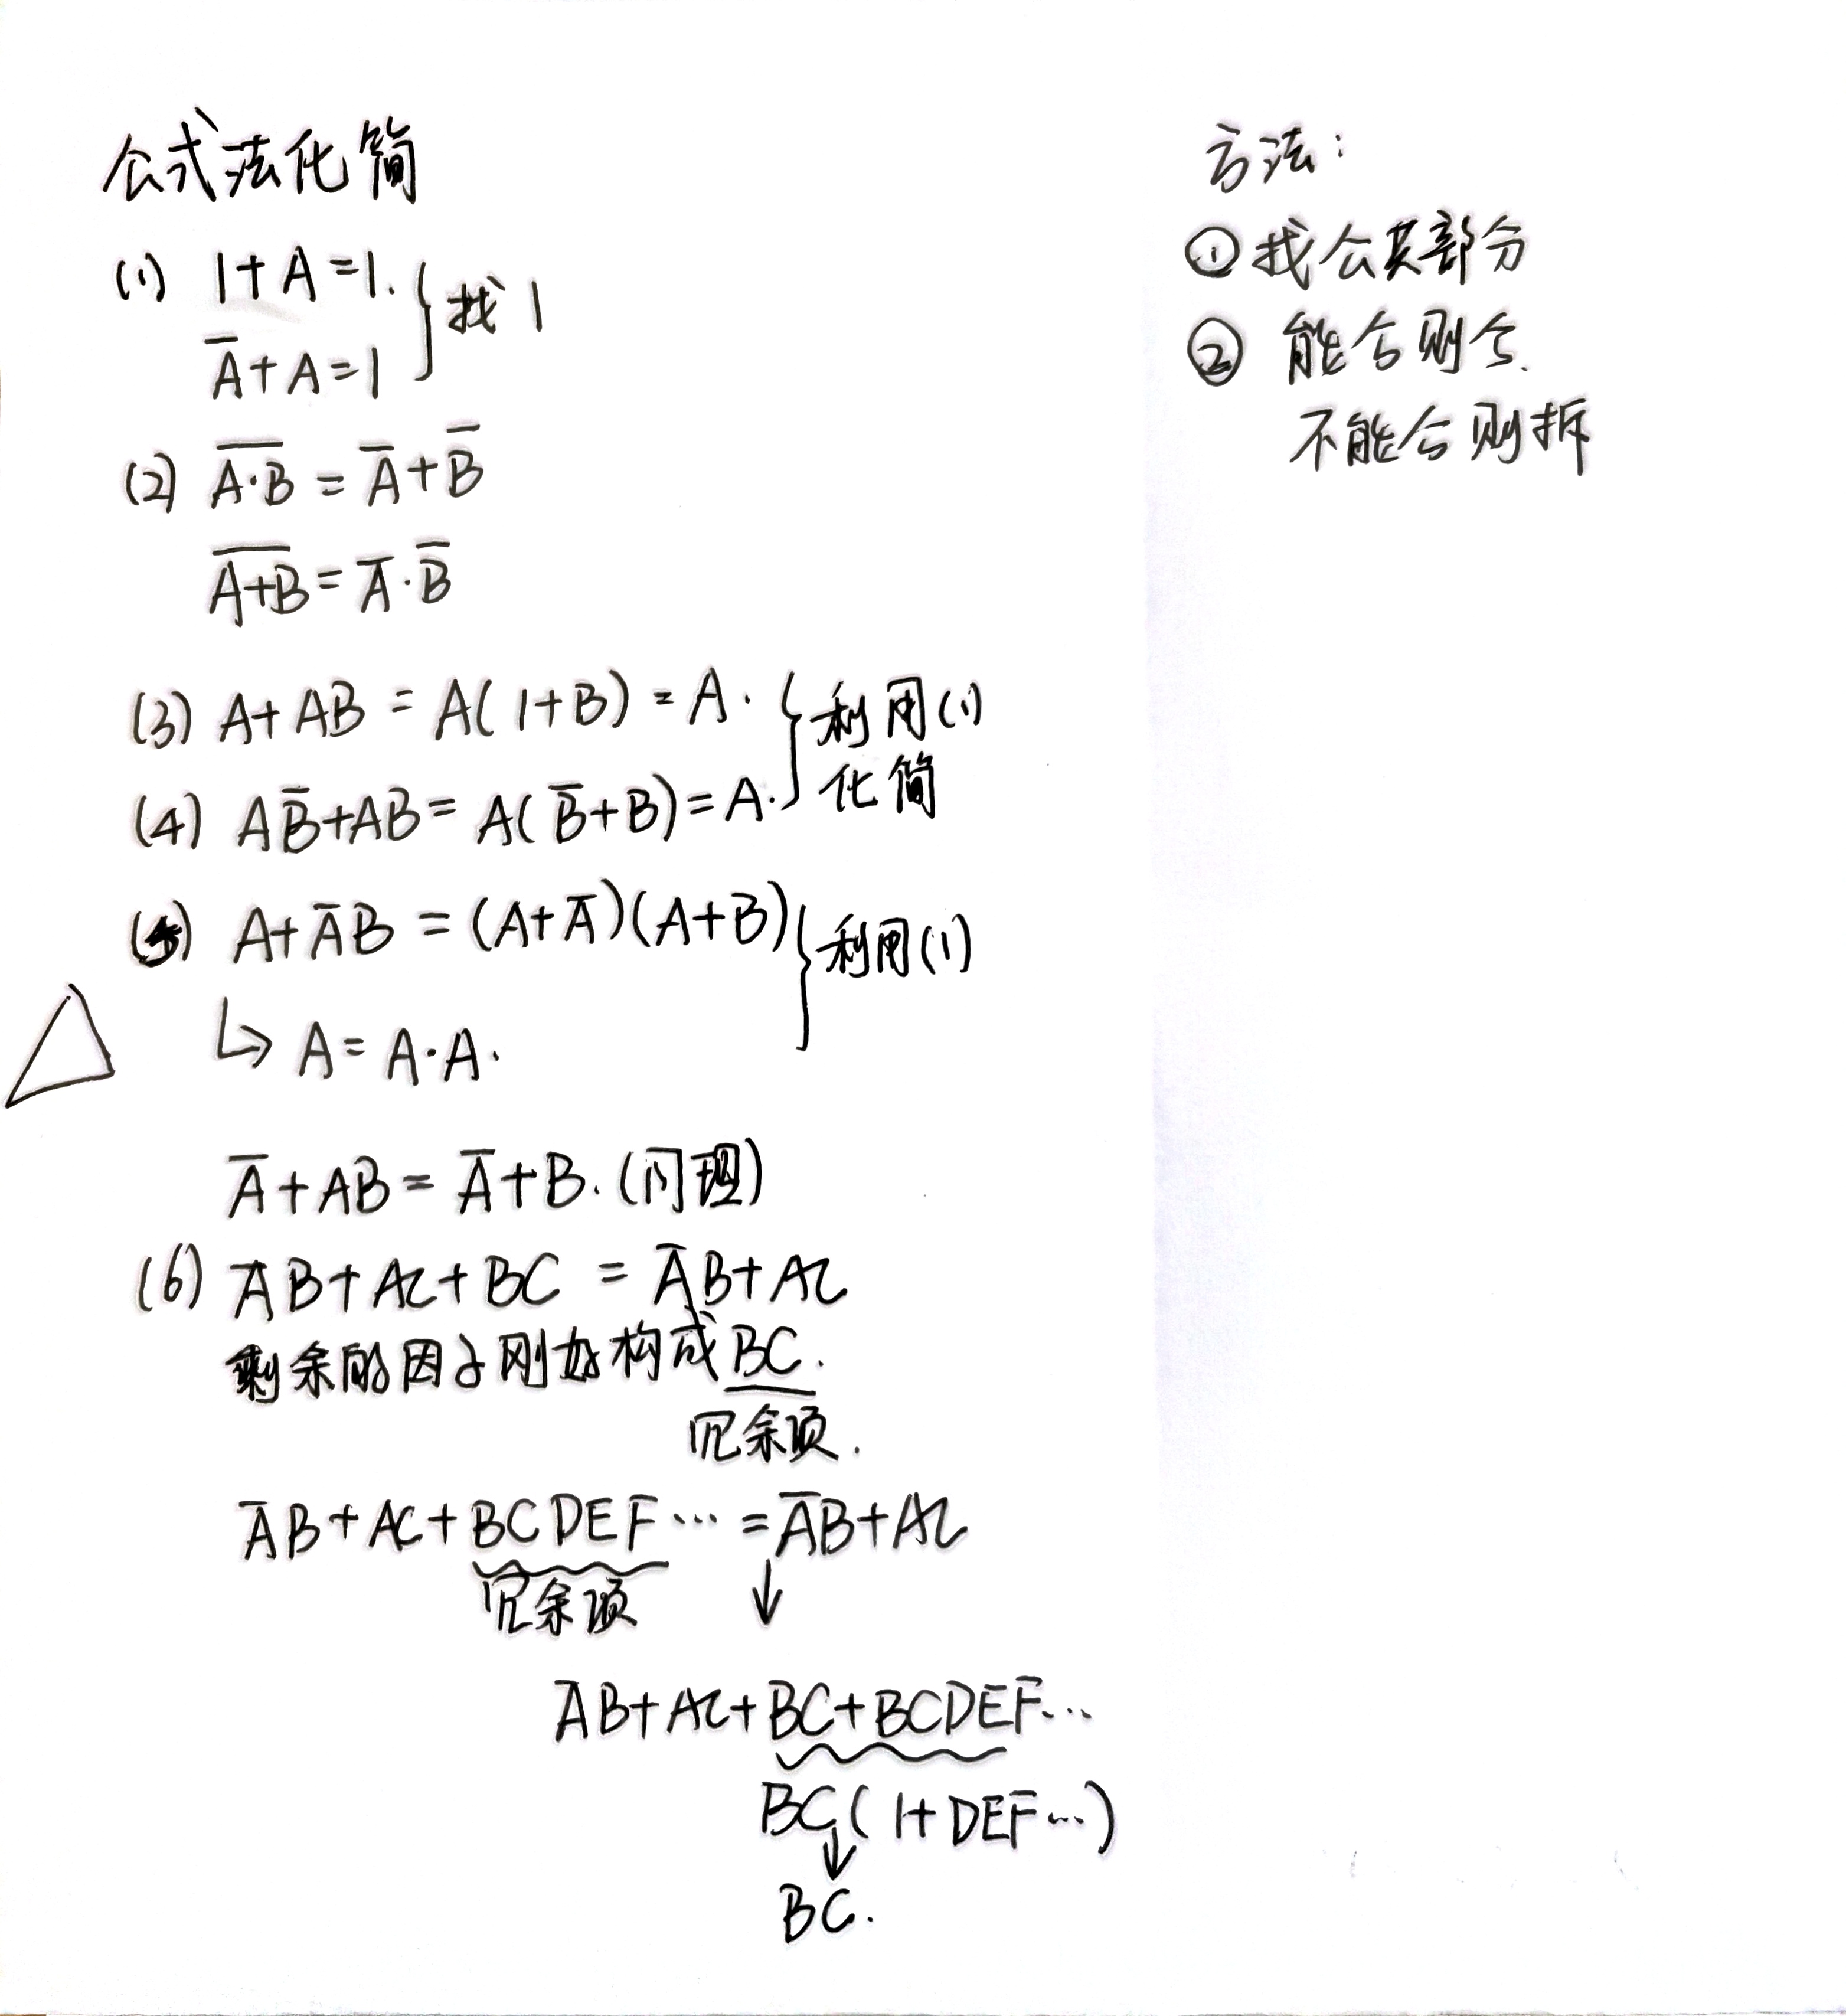 公式法化简
(1) 1+A=1. } 找1
A̅+A=1
(2) \overline{A·B} = A̅+B̅
\overline{A+B} = A̅·B̅
(3) A+AB = A(1+B) = A. } 利用(1)
化简
(4) AB̅+AB = A(B̅+B) = A.
(5) A+A̅B = (A+A̅)(A+B) } 利用(1)
↳ A = A·A.
A̅+AB = A̅+B. (同理)
(6) A̅B+AC+BC = A̅B+AC
剩余的因子刚好构成BC.
冗余项.
A̅B+AC+BCDEF··· = A̅B+AC
冗余项 ↓
A̅B+AC+BC+BCDEF···
BC(1+DEF···)
↓
BC.
方法:
① 找公共部分
② 能合则合.
不能合则拆